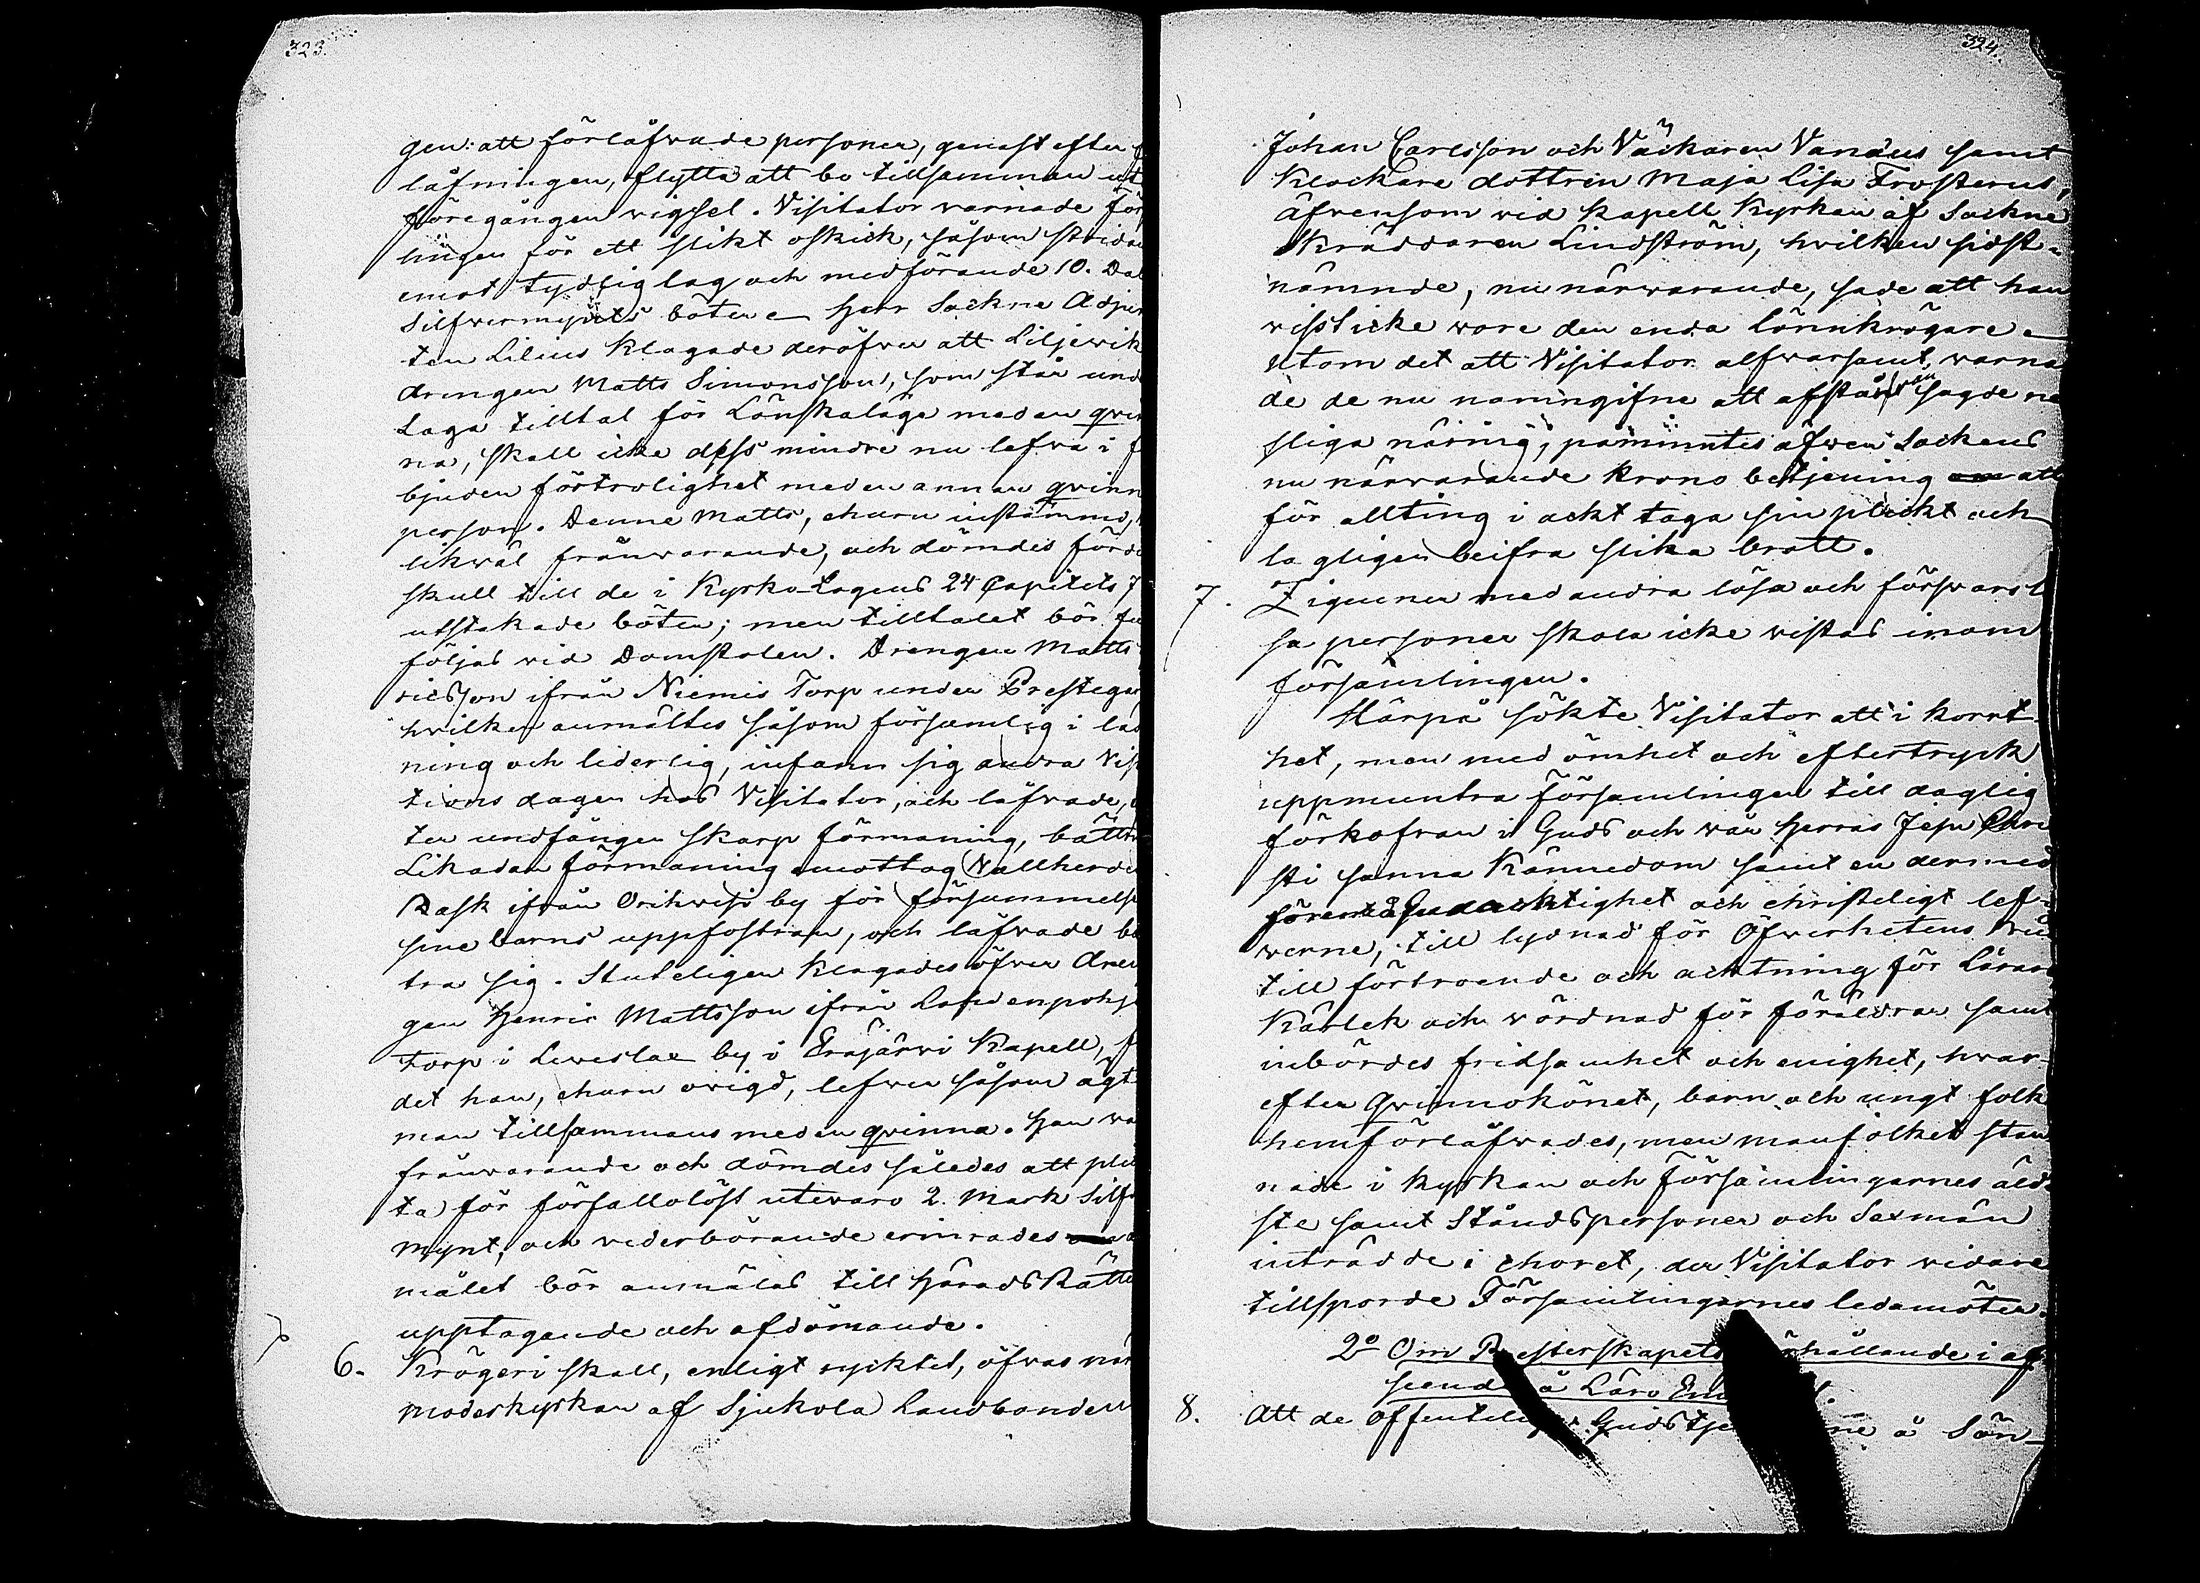 323.
gen: att förläfvade personer, genast efter
läfningen, flytta att bo tillsamman ut
föregången vigsel. Visitator varnade för
lingen för ett slikt oskick, såsom strida
emot tydlig lag och medförande 10. Dal
Silfvermynts böter. Herr Sockne Adjun
ten Lilius klagade deröfver att Liljewik
drengen Matts Simonsson, som står und
Laga tilltal för Lönskaläge med en qvin
na, skall icke dess mindre nu lefva i f
bjuden förtrolighet med en annan qvinn
person. Denne Matts, churu instämmd,
likväl frånvarande, och dömdes förde
skull till de i Kyrko-Lagens 24 Capitels 7
utstakade böter; men tilltalet bör ful
följas vid Domstolen. Drengen Matts
ricsson ifrån Niemis Torp under Prestegår
hvilken anmältes såsom försumlig i läs
ning och liderlig, infann sig andra Vis
tions dagen hos Visitator, och läfvade,
ter undfången skarp förmaning, bättr
Likadan förmaning emottog Vallherde
Rask ifrån Orihvesi by för försummelse
sine barns uppfostran, och läfvade bä
tra sig. Stuteligen klagades öfver dren
gen Henric Mattsson ifrån Lahdenpohja
torp i Leveslax by i Eräjärvi Kapell, f
det han, churu ovigd, lefver såsom ägt
man tillsammans med en qvinna. Han va
frånvarande och dömdes således att plic
ta för förfallolöst utevaro 2. Mark Silf
mynt, och vederbörande erinrades
målet bör anmälas till HäradsRätte
upptagande och afdömande.
6. Krögeri skall, enligt ryktet, öfvas när
moderkyrkan af Sjukola Landbonden
324.
Johan Carlsson och Väckaren Vanæus samt
Klockare dottren Maja Lisa Frosterus,
äfvensom vid Kapell Kyrkan af Sockne
Skräddaren Lindström, hvilken sidst-
nämnde, nu närvarande, sade att han
visst icke vore den enda Lönnkrögare.
Utom det att Visitator alfvarsamt varna
de de nu namngifne att afstå från sagde ne
sliga näring, påmintes äfven Sockens
nu närvarande Krono betjening att
för allting i ackt taga sin plickt och
lagligen beifra slika brott.
7. Zigener med andra lösa och försvarsl
sa personer skola icke vistas inom
församlingen.
Härpå sökte Visitator att i kort-
het, men med ömhet och eftertryck
uppmuntra församlingen till daglig
förkofran i Guds och vår Herras Jesu Chri
sti sanna Kännedom samt en dermed
förent Gudacktighet och christeligt lef-
verne, till lydnad för Öfverhetens
till förtroende och acktning för Lärare
Kärlek och vördnad för föräldrar samt
inbördes fridsamhet och enighet, hvar-
efter Qvinnokönet, barn och ungt folk
hemförläfvades, men manfolket stan
nade i kyrkan och Församlingarnes äld-
ste samt Ståndspersoner och Sexmän
inträdde i choret, der Visitator vidare
tillsporde Församlingarnes ledamöter.
2o Om Presterskapets förhållande i af
seende å Läro Em
8. Att de Offentelige Gudstje ne å Sön-